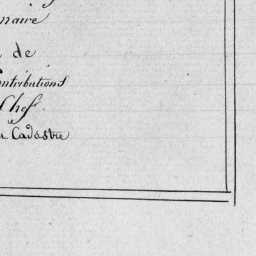 naire
de
ontributions
Chef
Cadastre